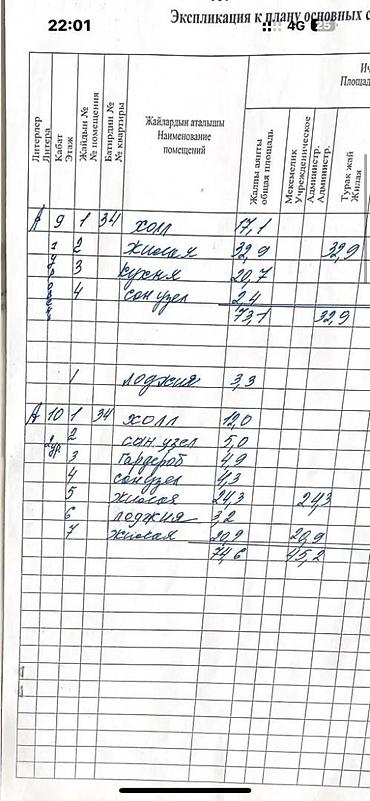 22:01
4G 25
Экспликация к плану основных с
Литерлер
Литера
Кабат
Этаж
Жайдын №
№ помещения
Батирдин №
№ квартиры
Жайлардын аталышы
Наименование
помещений
Жалпы аянты
общая площадь
Мекемелик
Учрежденическое
Администр.
Администр.
Турак жай
Жилая
Ич
Площад
А 9 1 34 холл 17,1
2 жилая 32,9 32,9
3 кухня 20,7
4 сан узел 2,4
73,1 32,9
1 лоджия 3,3
А 10 1 34 холл 12,0
2 сан узел 5,0
3 гардероб 4,9
4 сан узел 4,3
5 жилая 24,3 24,3
6 лоджия 3,2
7 жилая 20,9 20,9
74,6 45,2